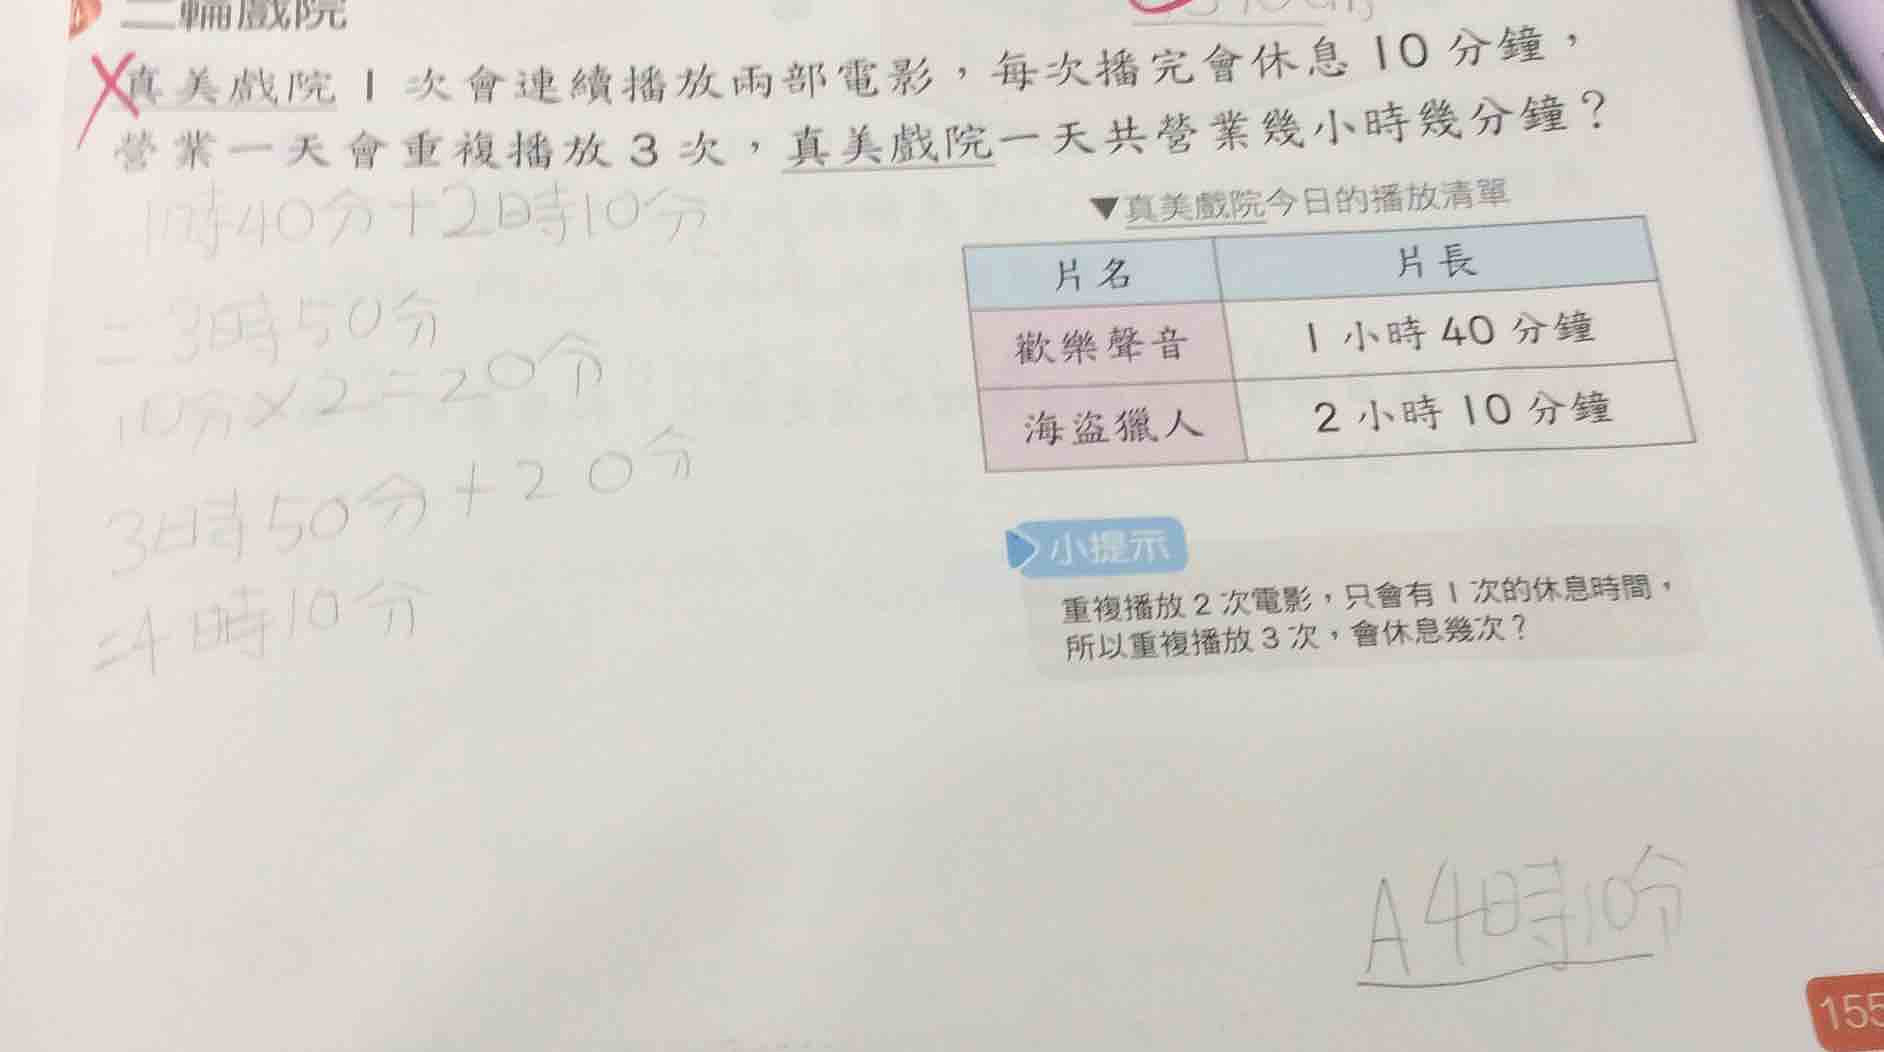 二輪戲院
真美戲院1次會連續播放兩部電影，每次播完會休息10分鐘，
營業一天會重複播放3次，真美戲院一天共營業幾小時幾分鐘？
1時40分+2時10分
=3時50分
10分×2=20分
3時50分+20分
=4時10分
▼真美戲院今日的播放清單
片名 片長
歡樂聲音 1小時40分鐘
海盜獵人 2小時10分鐘
小提示
重複播放2次電影，只會有1次的休息時間，
所以重複播放3次，會休息幾次？
A4時10分
155